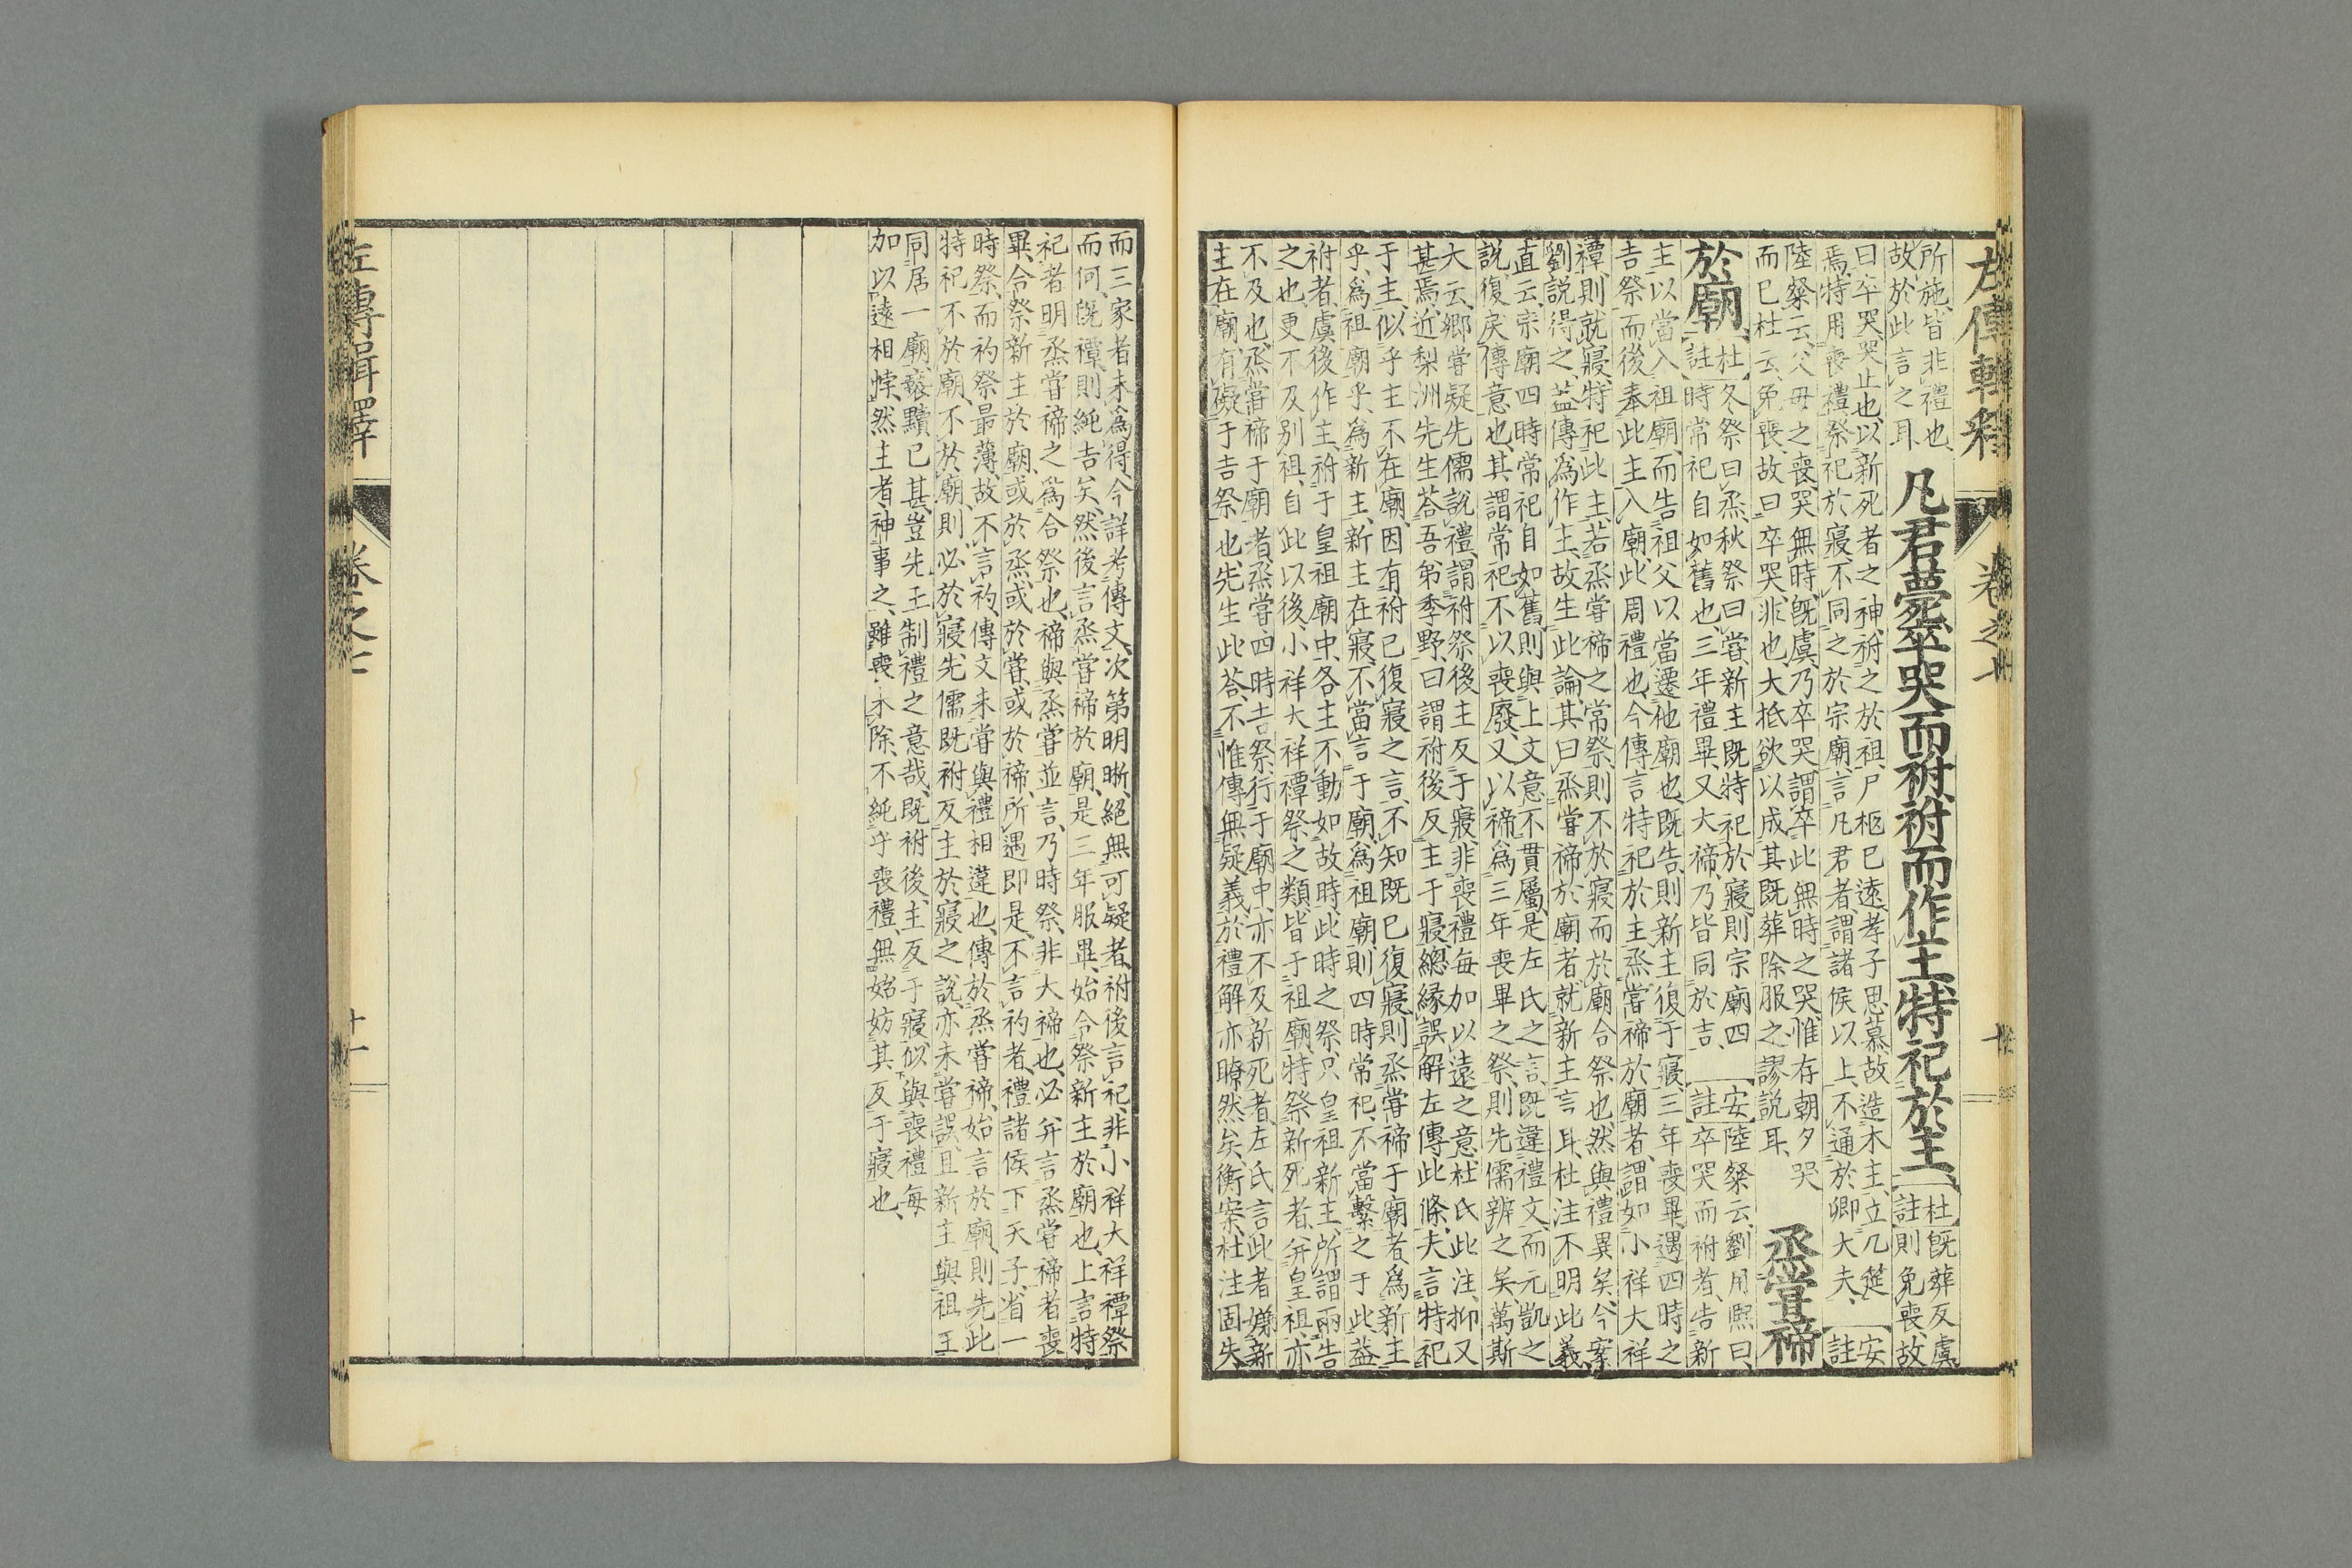 左傳輯釋
卷之七
所施、皆非禮也、
故於此言之耳、
凡君薨、卒哭而祔、祔而作主、特祀於主、
杜註
既葬反虞
則免喪、故
曰卒哭、哭止也、以新死者之神、祔之於祖、尸柩已遠、孝子思慕、故造木主、立几筵
焉、特用喪禮、祭祀於寢、不同之於宗廟、言凡君者、謂諸侯以上、不通於卿大夫、
安註
陸粲云、父母之喪、哭無時、既虞、乃卒哭、謂卒此無時之哭、惟存朝夕哭
而已、杜云、免喪、故曰卒哭、非也、大抵欲以成其既葬除服之謬說耳、
烝嘗禘
於廟、
杜註
冬祭曰烝、秋祭曰嘗、新主既特祀於寢、則宗廟四
時常祀自如舊也、三年禮畢、又大禘、乃皆同於吉、
安註
陸粲云、劉用熙曰、
卒哭而祔者、告新
主以當入祖廟、而告祖父以當遷他廟也、既告、則新主復于寢、三年喪畢、遇四時之
吉祭而後奉此主入廟、此周禮也、今傳言特祀於主、烝嘗禘於廟者、謂如小祥大祥
禫、則就寢特祀此主、若烝嘗禘之常祭、則不於寢而於廟合祭也、然與禮異矣、今案
劉說得之、蓋傳為作主、故生此論、其曰烝嘗禘於廟者、就新主言耳、杜注不明此義、
直云、宗廟四時常祀自如舊、則與上文意不貫屬、是左氏之言、既違禮文、而元凱之
說、復戾傳意也、其謂常祀不以喪廢、又以禘為三年喪畢之祭、則先儒辨之矣、萬斯
大云、鄉嘗疑先儒說禮、謂祔祭後主反于寢、非喪禮每加以遠之意、杜氏此注、抑又
甚焉、近梨洲先生荅吾弟季野、曰、謂祔後反主于寢、總緣誤解左傳此條、夫言特祀
于主、似乎主不在廟、因有祔已復寢之言、不知既已復寢、則烝嘗禘于廟者、為新主
乎、為祖廟乎、為新主、新主在寢、不當言于廟、為祖廟、則四時常祀、不當繫之于此、蓋
祔者、虞後作主、祔于皇祖廟中、各主不動如故時、此時之祭、只皇祖新主、所謂兩告
之也、更不及別祖、自此以後、小祥大祥禫祭之類、皆于祖廟、特祭新死者、并皇祖亦
不及也、烝嘗禘于廟者、烝嘗四時吉祭、行于廟中、亦不及新死者、左氏言此者、嫌新
主在廟、有礙于吉祭也、先生此荅、不惟傳無疑義、於禮解亦瞭然矣、衡案、杜注固失、
而三家者未為得、今詳考傳文、次第明晰、絕無可疑者、祔後言祀、非小祥大祥禫祭
而何、既禫、則純吉矣、然後言烝嘗禘於廟、是三年服畢、始合祭新主於廟也、上言特
祀者、明烝嘗禘之為合祭也、禘與烝嘗並言、乃時祭、非大禘也、必并言烝嘗禘者、喪
畢、合祭新主於廟、或於烝、或於嘗、或於禘、所遇即是、不言礿者、禮諸侯下天子、省一
時祭、而礿祭最薄、故不言礿、傳文未嘗與禮相違也、傳於烝嘗禘、始言於廟、則先此
特祀、不於廟、不於廟、則必於寢、先儒既祔反主於寢之說、亦未嘗誤、且新主與祖王
同居一廟、褻黷已甚、豈先王制禮之意哉、既祔後、主反于寢、似與喪禮每
加以遠相悖、然主者、神事之、雖喪未除、不純乎喪禮、無妨其反于寢也、
左傳輯釋
卷之七
十一